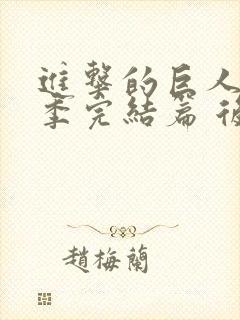 進撃的巨人
季完結篇 後
趙梅蘭